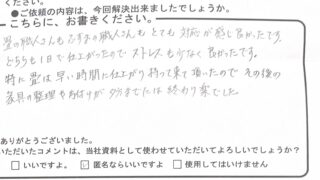 ください。
●ご依頼の内容は、今回解決出来ましたでしょうか。
こちらに、お書きください。
畳の職人さんもふすまの職人さんも とても 対応が感じ良かったです。
どちらも1日で仕上がったので ストレスも少なく 良かったです。
特に 畳は 早い時間に仕上がり 持って来て頂いたので その後の
家具の整理や片付けが夕方までには 終わり 楽でした。
ありがとうございました。
いただいたコメントは、当社資料として使わせていただいてよろしいでしょうか？
いいですよ。 匿名ならいいですよ 使用してはいけません